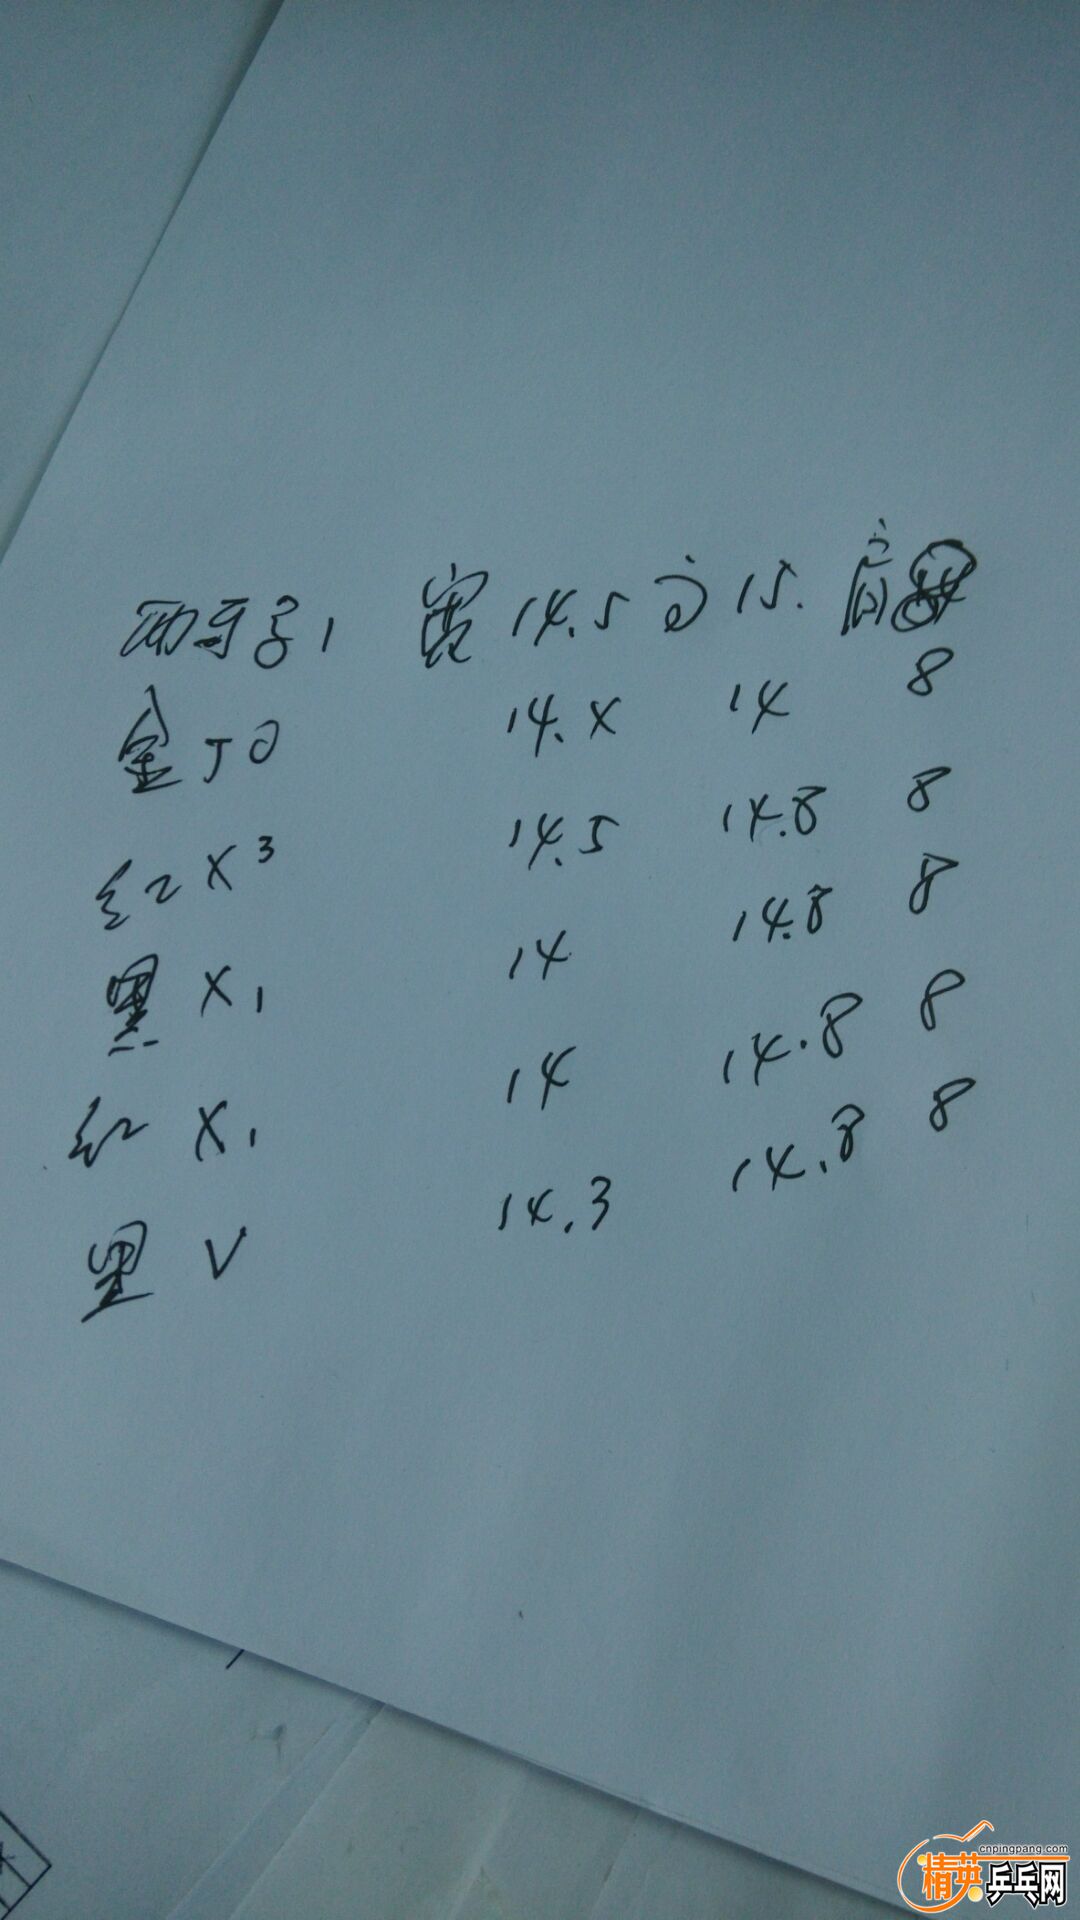 西牙子1 宽 14.5 高 15. 肩
金 TO 14.x 14 8
红 X3 14.5 14.8 8
黑 X1 14 14.8 8
红 X1 14 14.8 8
黑 V 14.3 14.8 8
cnpingpang.com
精英乒乓网